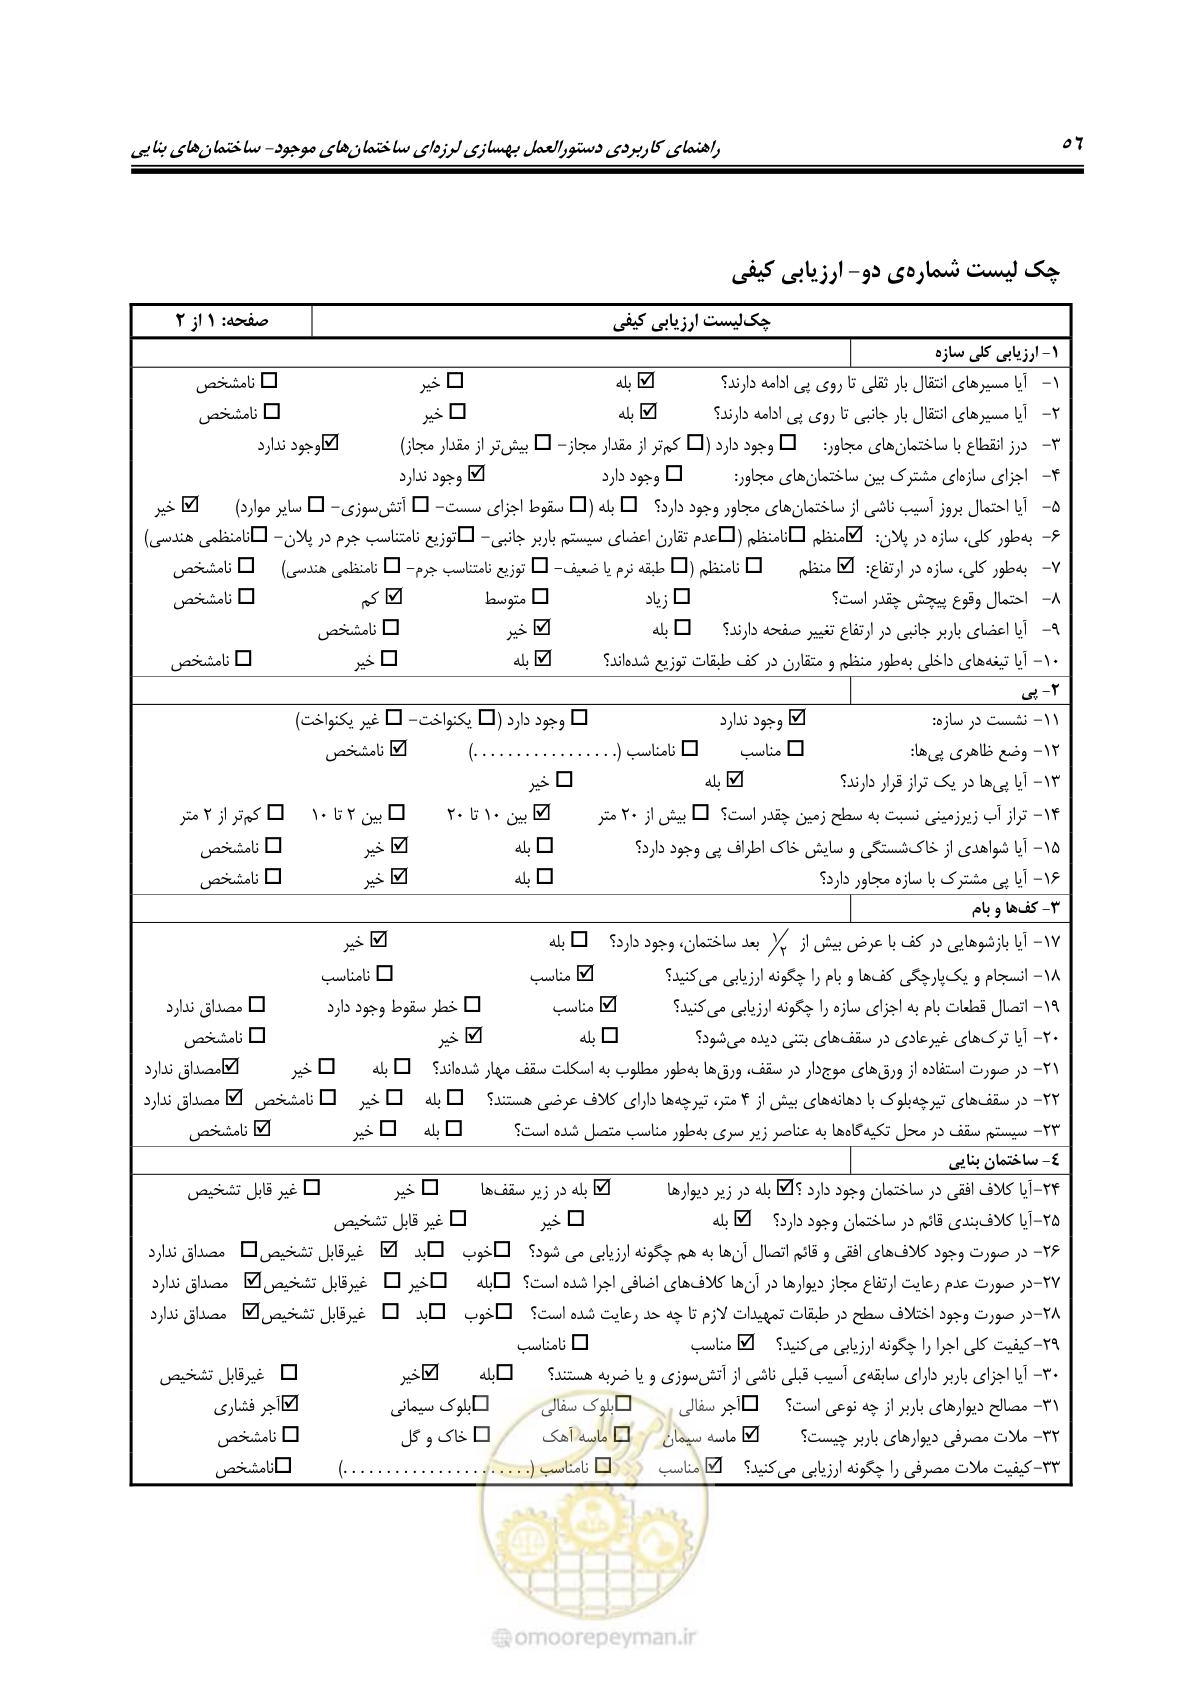 ۵۶
راهنمای کاربردی دستورالعمل بهسازی لرزه‌ای ساختمان‌های موجود- ساختمان‌های بنایی
چک لیست شماره‌ی دو- ارزیابی کیفی
چک‌لیست ارزیابی کیفی صفحه: ۱ از ۲
۱- ارزیابی کلی سازه
۱- آیا مسیرهای انتقال بار ثقلی تا روی پی ادامه دارند؟ ☑ بله ☐ خیر ☐ نامشخص
۲- آیا مسیرهای انتقال بار جانبی تا روی پی ادامه دارند؟ ☑ بله ☐ خیر ☐ نامشخص
۳- درز انقطاع با ساختمان‌های مجاور: ☐ وجود دارد (☐ کم‌تر از مقدار مجاز- ☐ بیش‌تر از مقدار مجاز) ☑وجود ندارد
۴- اجزای سازه‌ای مشترک بین ساختمان‌های مجاور: ☐ وجود دارد ☑ وجود ندارد
۵- آیا احتمال بروز آسیب ناشی از ساختمان‌های مجاور وجود دارد؟ ☐ بله (☐ سقوط اجزای سست- ☐ آتش‌سوزی- ☐ سایر موارد) ☑ خیر
۶- به‌طور کلی، سازه در پلان: ☑منظم ☐نامنظم (☐عدم تقارن اعضای سیستم باربر جانبی- ☐توزیع نامتناسب جرم در پلان- ☐نامنظمی هندسی)
۷- به‌طور کلی، سازه در ارتفاع: ☑ منظم ☐ نامنظم (☐ طبقه نرم یا ضعیف- ☐ توزیع نامتناسب جرم- ☐ نامنظمی هندسی) ☐ نامشخص
۸- احتمال وقوع پیچش چقدر است؟ ☐ زیاد ☐ متوسط ☑ کم ☐ نامشخص
۹- آیا اعضای باربر جانبی در ارتفاع تغییر صفحه دارند؟ ☐ بله ☑ خیر ☐ نامشخص
۱۰- آیا تیغه‌های داخلی به‌طور منظم و متقارن در کف طبقات توزیع شده‌اند؟ ☑ بله ☐ خیر ☐ نامشخص
۲- پی
۱۱- نشست در سازه: ☑ وجود ندارد ☐ وجود دارد (☐ یکنواخت- ☐ غیر یکنواخت)
۱۲- وضع ظاهری پی‌ها: ☐ مناسب ☐ نامناسب (.................) ☑ نامشخص
۱۳- آیا پی‌ها در یک تراز قرار دارند؟ ☑ بله ☐ خیر
۱۴- تراز آب زیرزمینی نسبت به سطح زمین چقدر است؟ ☐ بیش از ۲۰ متر ☑ بین ۱۰ تا ۲۰ ☐ بین ۲ تا ۱۰ ☐ کم‌تر از ۲ متر
۱۵- آیا شواهدی از خاک‌شستگی و سایش خاک اطراف پی وجود دارد؟ ☐ بله ☑ خیر ☐ نامشخص
۱۶- آیا پی مشترک با سازه مجاور دارد؟ ☐ بله ☑ خیر ☐ نامشخص
۳- کف‌ها و بام
۱۷- آیا بازشوهایی در کف با عرض بیش از ۱/۲ بعد ساختمان، وجود دارد؟ ☐ بله ☑ خیر
۱۸- انسجام و یک‌پارچگی کف‌ها و بام را چگونه ارزیابی می‌کنید؟ ☑ مناسب ☐ نامناسب
۱۹- اتصال قطعات بام به اجزای سازه را چگونه ارزیابی می‌کنید؟ ☑ مناسب ☐ خطر سقوط وجود دارد ☐ مصداق ندارد
۲۰- آیا ترک‌های غیرعادی در سقف‌های بتنی دیده می‌شود؟ ☐ بله ☑ خیر ☐ نامشخص
۲۱- در صورت استفاده از ورق‌های موج‌دار در سقف، ورق‌ها به‌طور مطلوب به اسکلت سقف مهار شده‌اند؟ ☐ بله ☐ خیر ☑مصداق ندارد
۲۲- در سقف‌های تیرچه‌بلوک با دهانه‌های بیش از ۴ متر، تیرچه‌ها دارای کلاف عرضی هستند؟ ☐ بله ☐ خیر ☐ نامشخص ☑ مصداق ندارد
۲۳- سیستم سقف در محل تکیه‌گاه‌ها به عناصر زیر سری به‌طور مناسب متصل شده است؟ ☐ بله ☐ خیر ☑ نامشخص
۴- ساختمان بنایی
۲۴-آیا کلاف افقی در ساختمان وجود دارد ؟☑ بله در زیر دیوارها ☑ بله در زیر سقف‌ها ☐ خیر ☐ غیر قابل تشخیص
۲۵-آیا کلاف‌بندی قائم در ساختمان وجود دارد؟ ☑ بله ☐ خیر ☐ غیر قابل تشخیص
۲۶- در صورت وجود کلاف‌های افقی و قائم اتصال آن‌ها به هم چگونه ارزیابی می شود؟ ☐خوب ☐بد ☑ غیرقابل تشخیص☐ مصداق ندارد
۲۷-در صورت عدم رعایت ارتفاع مجاز دیوارها در آن‌ها کلاف‌های اضافی اجرا شده است؟ ☐بله ☐خیر ☐ غیرقابل تشخیص☑ مصداق ندارد
۲۸-در صورت وجود اختلاف سطح در طبقات تمهیدات لازم تا چه حد رعایت شده است؟ ☐خوب ☐بد ☐ غیرقابل تشخیص☑ مصداق ندارد
۲۹-کیفیت کلی اجرا را چگونه ارزیابی می‌کنید؟ ☑ مناسب ☐ نامناسب
۳۰- آیا اجزای باربر دارای سابقه‌ی آسیب قبلی ناشی از آتش‌سوزی و یا ضربه هستند؟ ☐بله ☑خیر ☐ غیرقابل تشخیص
۳۱- مصالح دیوارهای باربر از چه نوعی است؟ ☐آجر سفالی ☐بلوک سفالی ☐بلوک سیمانی ☑آجر فشاری
۳۲- ملات مصرفی دیوارهای باربر چیست؟ ☑ ماسه سیمان ☐ ماسه آهک ☐ خاک و گل ☐ نامشخص
۳۳-کیفیت ملات مصرفی را چگونه ارزیابی می‌کنید؟ ☑ مناسب ☐ نامناسب (......................) ☐نامشخص
امور پیمان
@omoorepeyman.ir